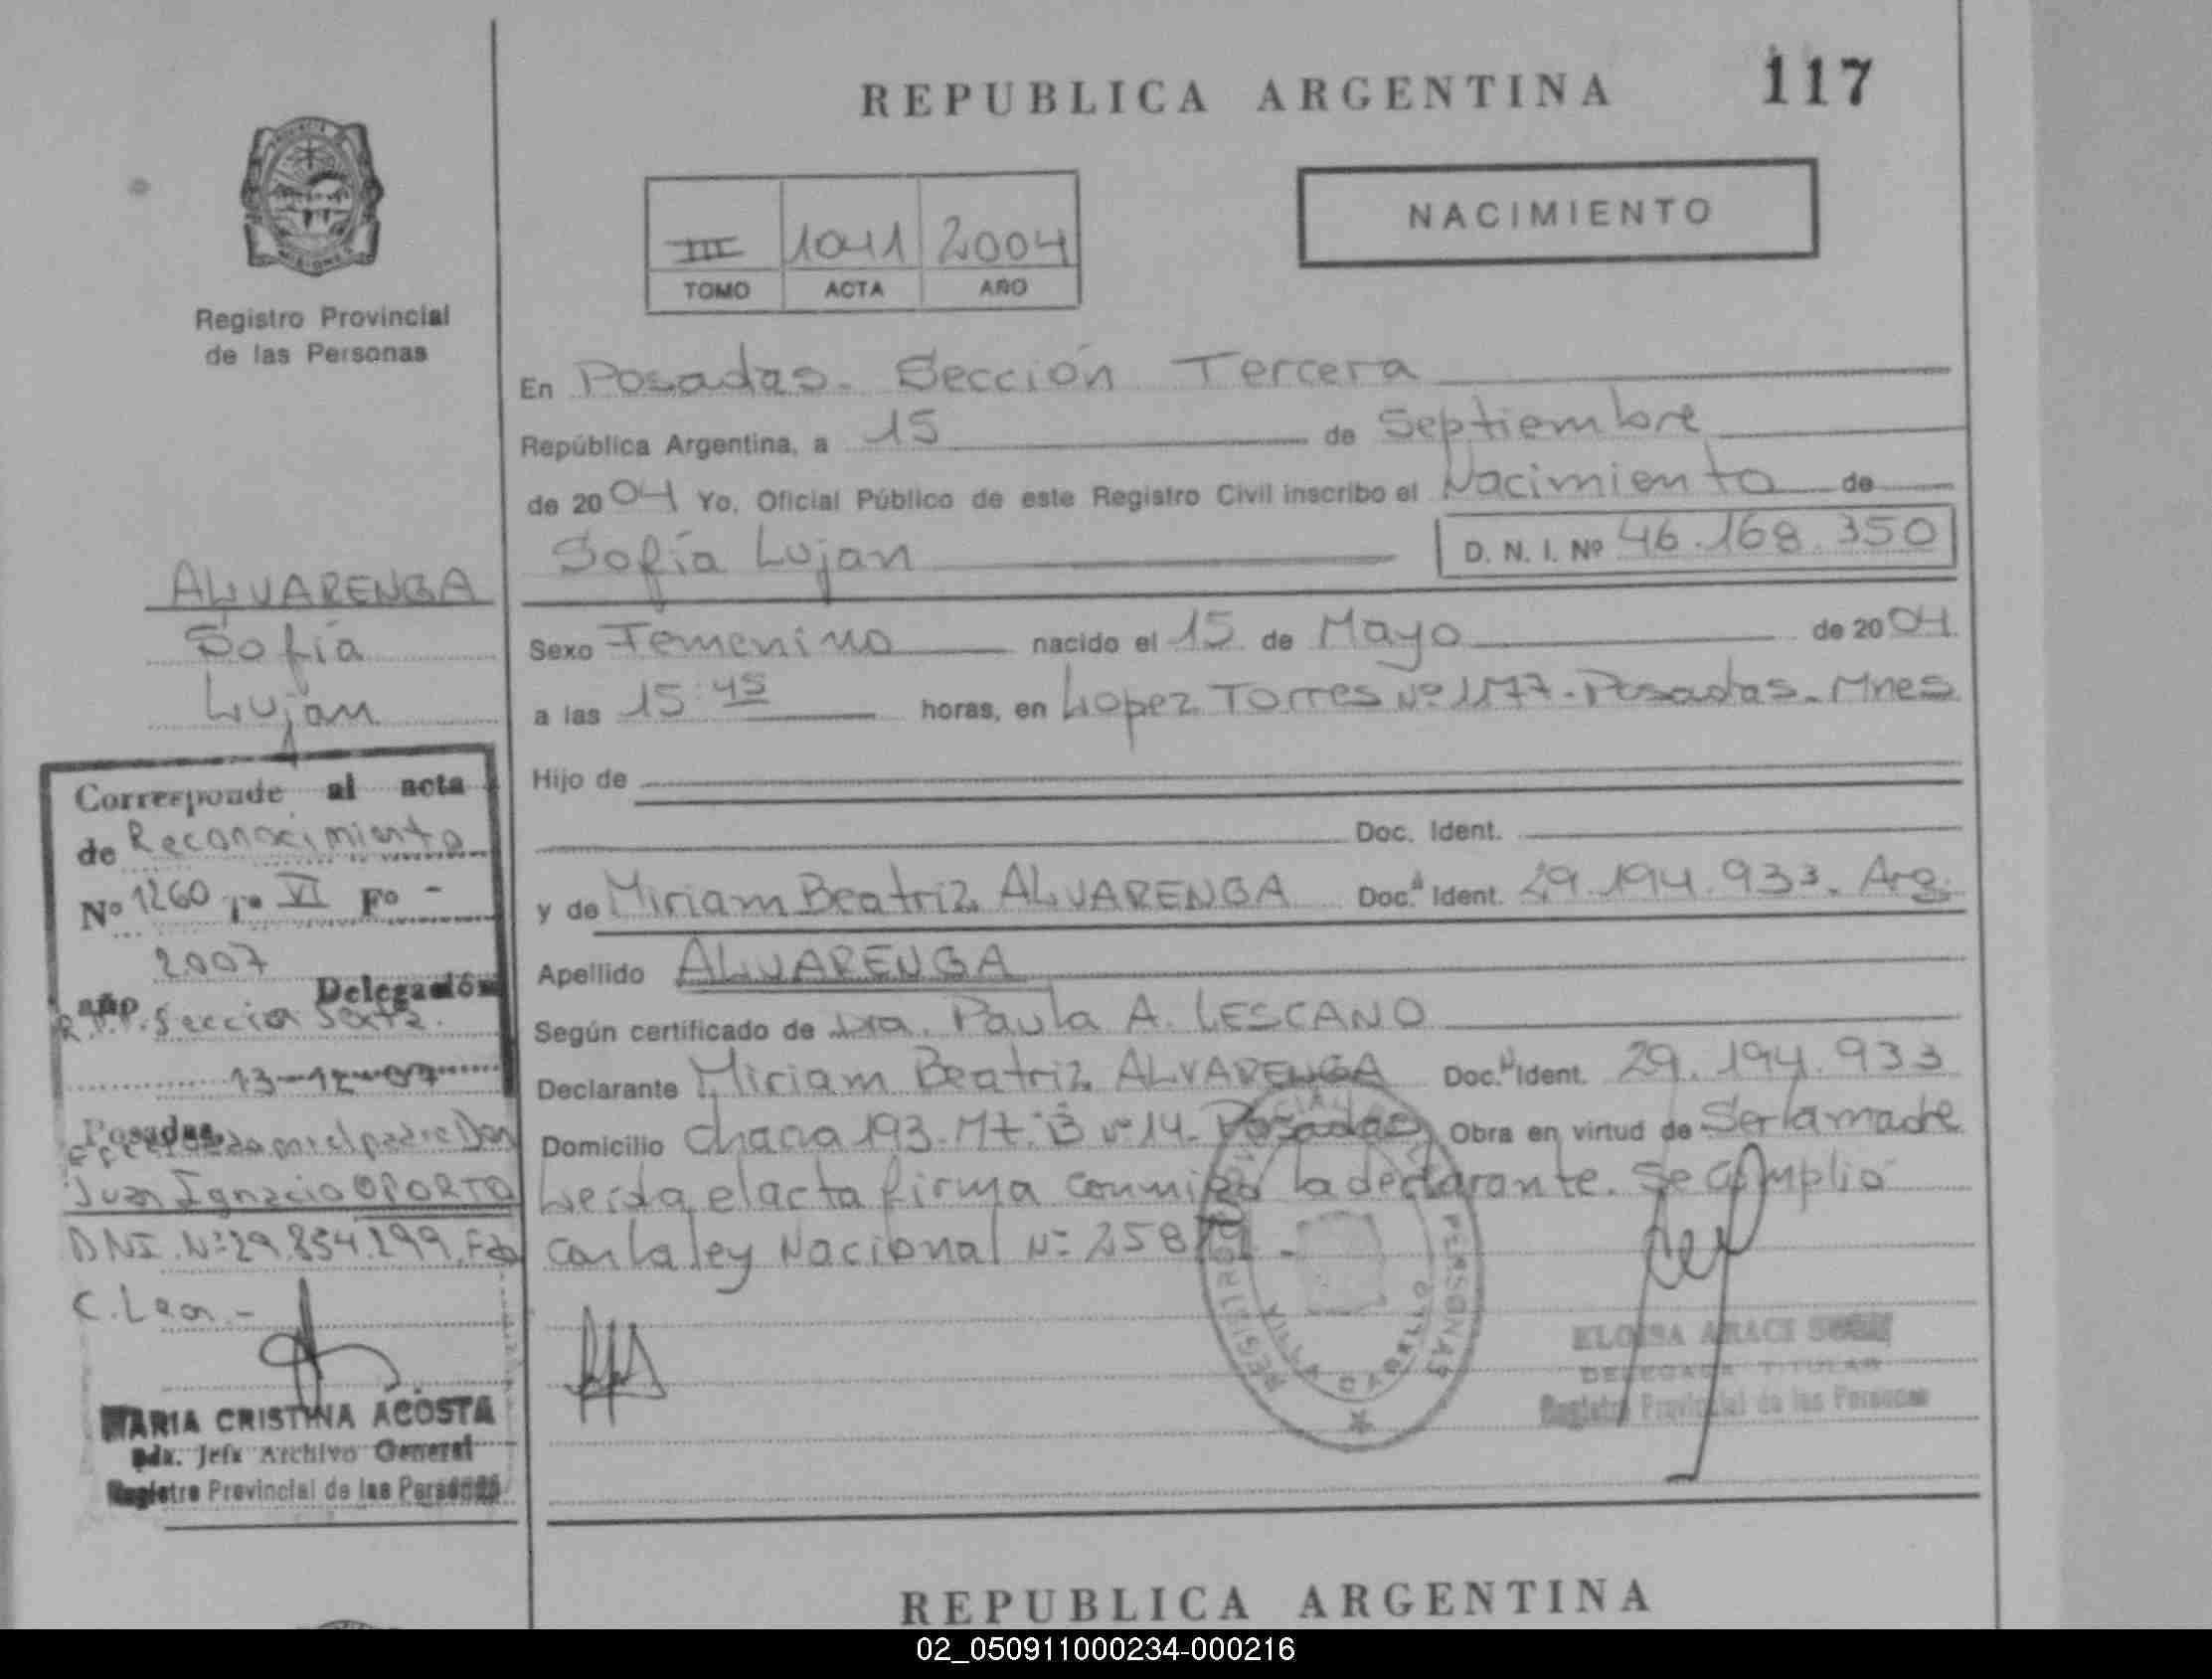 REPUBLICA ARGENTINA
117
NACIMIENTO
III 1041 2004
TOMO ACTA AÑO
Registro Provincial
de las Personas
En Posadas. Sección Tercera
República Argentina, a 15 de Septiembre
de 2004 Yo, Oficial Público de este Registro Civil inscribo el Nacimiento de
Sofía Lujan D. N. I. Nº 46.168.350
ALVARENGA
Sofía
Lujan
Sexo Femenino nacido el 15 de Mayo de 2004
a las 15:45 horas, en Lopez Torres Nº 1177 - Posadas. Mnes
Hijo de
Doc. Ident.
y de Miriam Beatriz ALVARENGA Doc. Ident. 29.194.933. Arg.
Apellido ALVARENGA
Según certificado de Dra. Paula A. LESCANO
Declarante Miriam Beatriz ALVARENGA Doc. Ident. 29.194.933
Domicilio chacra 193. Mz. B nº 14. Posadas Obra en virtud de Ser la madre
Leida el acta firma conmigo la declarante. Se Cumplio
con la ley Nacional Nº
Corresponde al acta
de Reconocimiento
Nº 1260 Tº VI Fº -
2007
año Delegación
R.P.P. Seccion Sexta.
13-12-07
Posadas,
por el padre Don
Juan Ignacio OPORTO
DNI. Nº 29.854.299. Fdo
C. Leon.-
MARIA CRISTINA ACOSTA
Jefa Archivo General
Registro Provincial de las Personas
REGISTRO PROVINCIAL PERSONAS
VILLA CABELLO
ELOISA ARACI
DELEGADA TITULAR
Registro Provincial de las Personas
REPUBLICA ARGENTINA
02_050911000234-000216